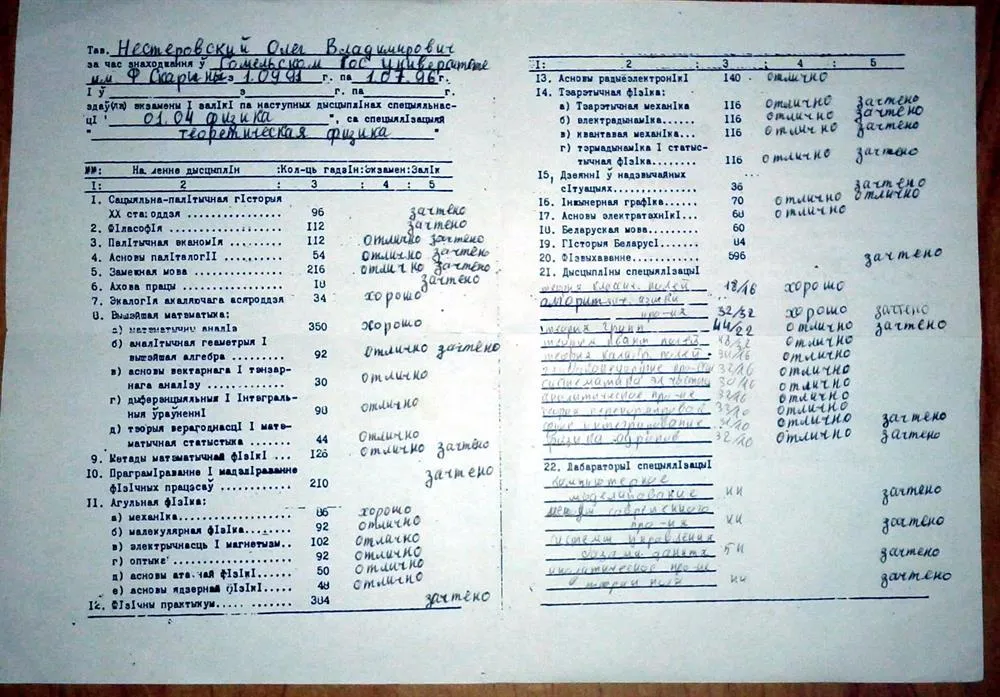 Тав. Нестеровский Олег Владимирович
за час знаходжання ў Гомельском Гос Университете
им Ф Скарины з 1.09.91 г. па 1.07.96 г.
І ў з г. па г.
здаў(ла) экзамены і залікі па наступных дысцыплінах спецыяльнас-
ці " 01.04 физика ", са спецыялізацыяй
" теоретическая физика "
№№: На ленне дысцыплін :Кол-ць гадзін:Экзамен:Залік
І: 2 : 3 : 4 : 5
І. Сацыяльна-палітычная гісторыя
ХХ стагоддзя 96 зачтено
2. Філасофія 112 зачтено
3. Палітычная эканомія 112 отлично зачтено
4. Асновы паліталогіі 54 отлично зачтено
5. Замежная мова 216 отлично зачтено
6. Ахова працы 18 зачтено
7. Экалогія акаляючага асяроддзя 34 хорошо
8. Вышэйшая матэматыка:
а) матэматычны аналіз 350 хорошо
б) аналітычная геаметрыя і
вышэйшая алгебра 92 отлично зачтено
в) асновы вектарнага і тэнзар-
нага аналізу 30 отлично
г) дыферэнцыяльныя і інтэграль-
ныя ўраўненні 90 отлично
д) тэорыя верагоднасці і матэ-
матычная статыстыка 44 отлично
9. Метады матэматычнай фізікі 126 отлично зачтено
10. Праграміраванне і мадэліраванне
фізічных працэсаў 210 зачтено
ІІ. Агульная фізіка:
а) механіка 86 хорошо
б) малекулярная фізіка 92 отлично
в) электрычнасць і магнетызм 102 отлично
г) оптыка 92 отлично
д) асновы атамнай фізікі 50 отлично
е) асновы ядзернай фізікі 48 отлично
12. Фізічны практыкум 384 зачтено
І: 2 : 3 : 4 : 5
13. Асновы радыёэлектронікі 140 отлично
14. Тэарэтычная фізіка:
а) Тэарэтычная механіка 116 отлично зачтено
б) электрадынаміка 116 отлично зачтено
в) квантавая механіка 116 отлично зачтено
г) тэрмадынаміка і статыс-
тычная фізіка 116 отлично зачтено
15. Дзеянні ў надзвычайных
сітуацыях 36 зачтено
16. Інжынерная графіка 70 отлично отлично
17. Асновы электратэхнікі 68 отлично
18. Беларуская мова 60
19. Гісторыя Беларусі 84
20. Фізвыхаванне 596 зачтено
21. Дысцыпліны спецыялізацыі
18/16 хорошо
32/32 хорошо зачтено
теория групп 44/22 отлично зачтено
теория квант полей отлично
теория калибр. полей отлично
отлично
систематика эл частиц 30/16 отлично
аналитическое отлично
отлично
отлично зачтено
физика адронов 32/10 отлично зачтено
22. Лабараторыі спецыялізацыі
компьютерное
моделирование зачтено
методы современного
зачтено
системы управления
базами данных зачтено
аналитическое
теории поля зачтено